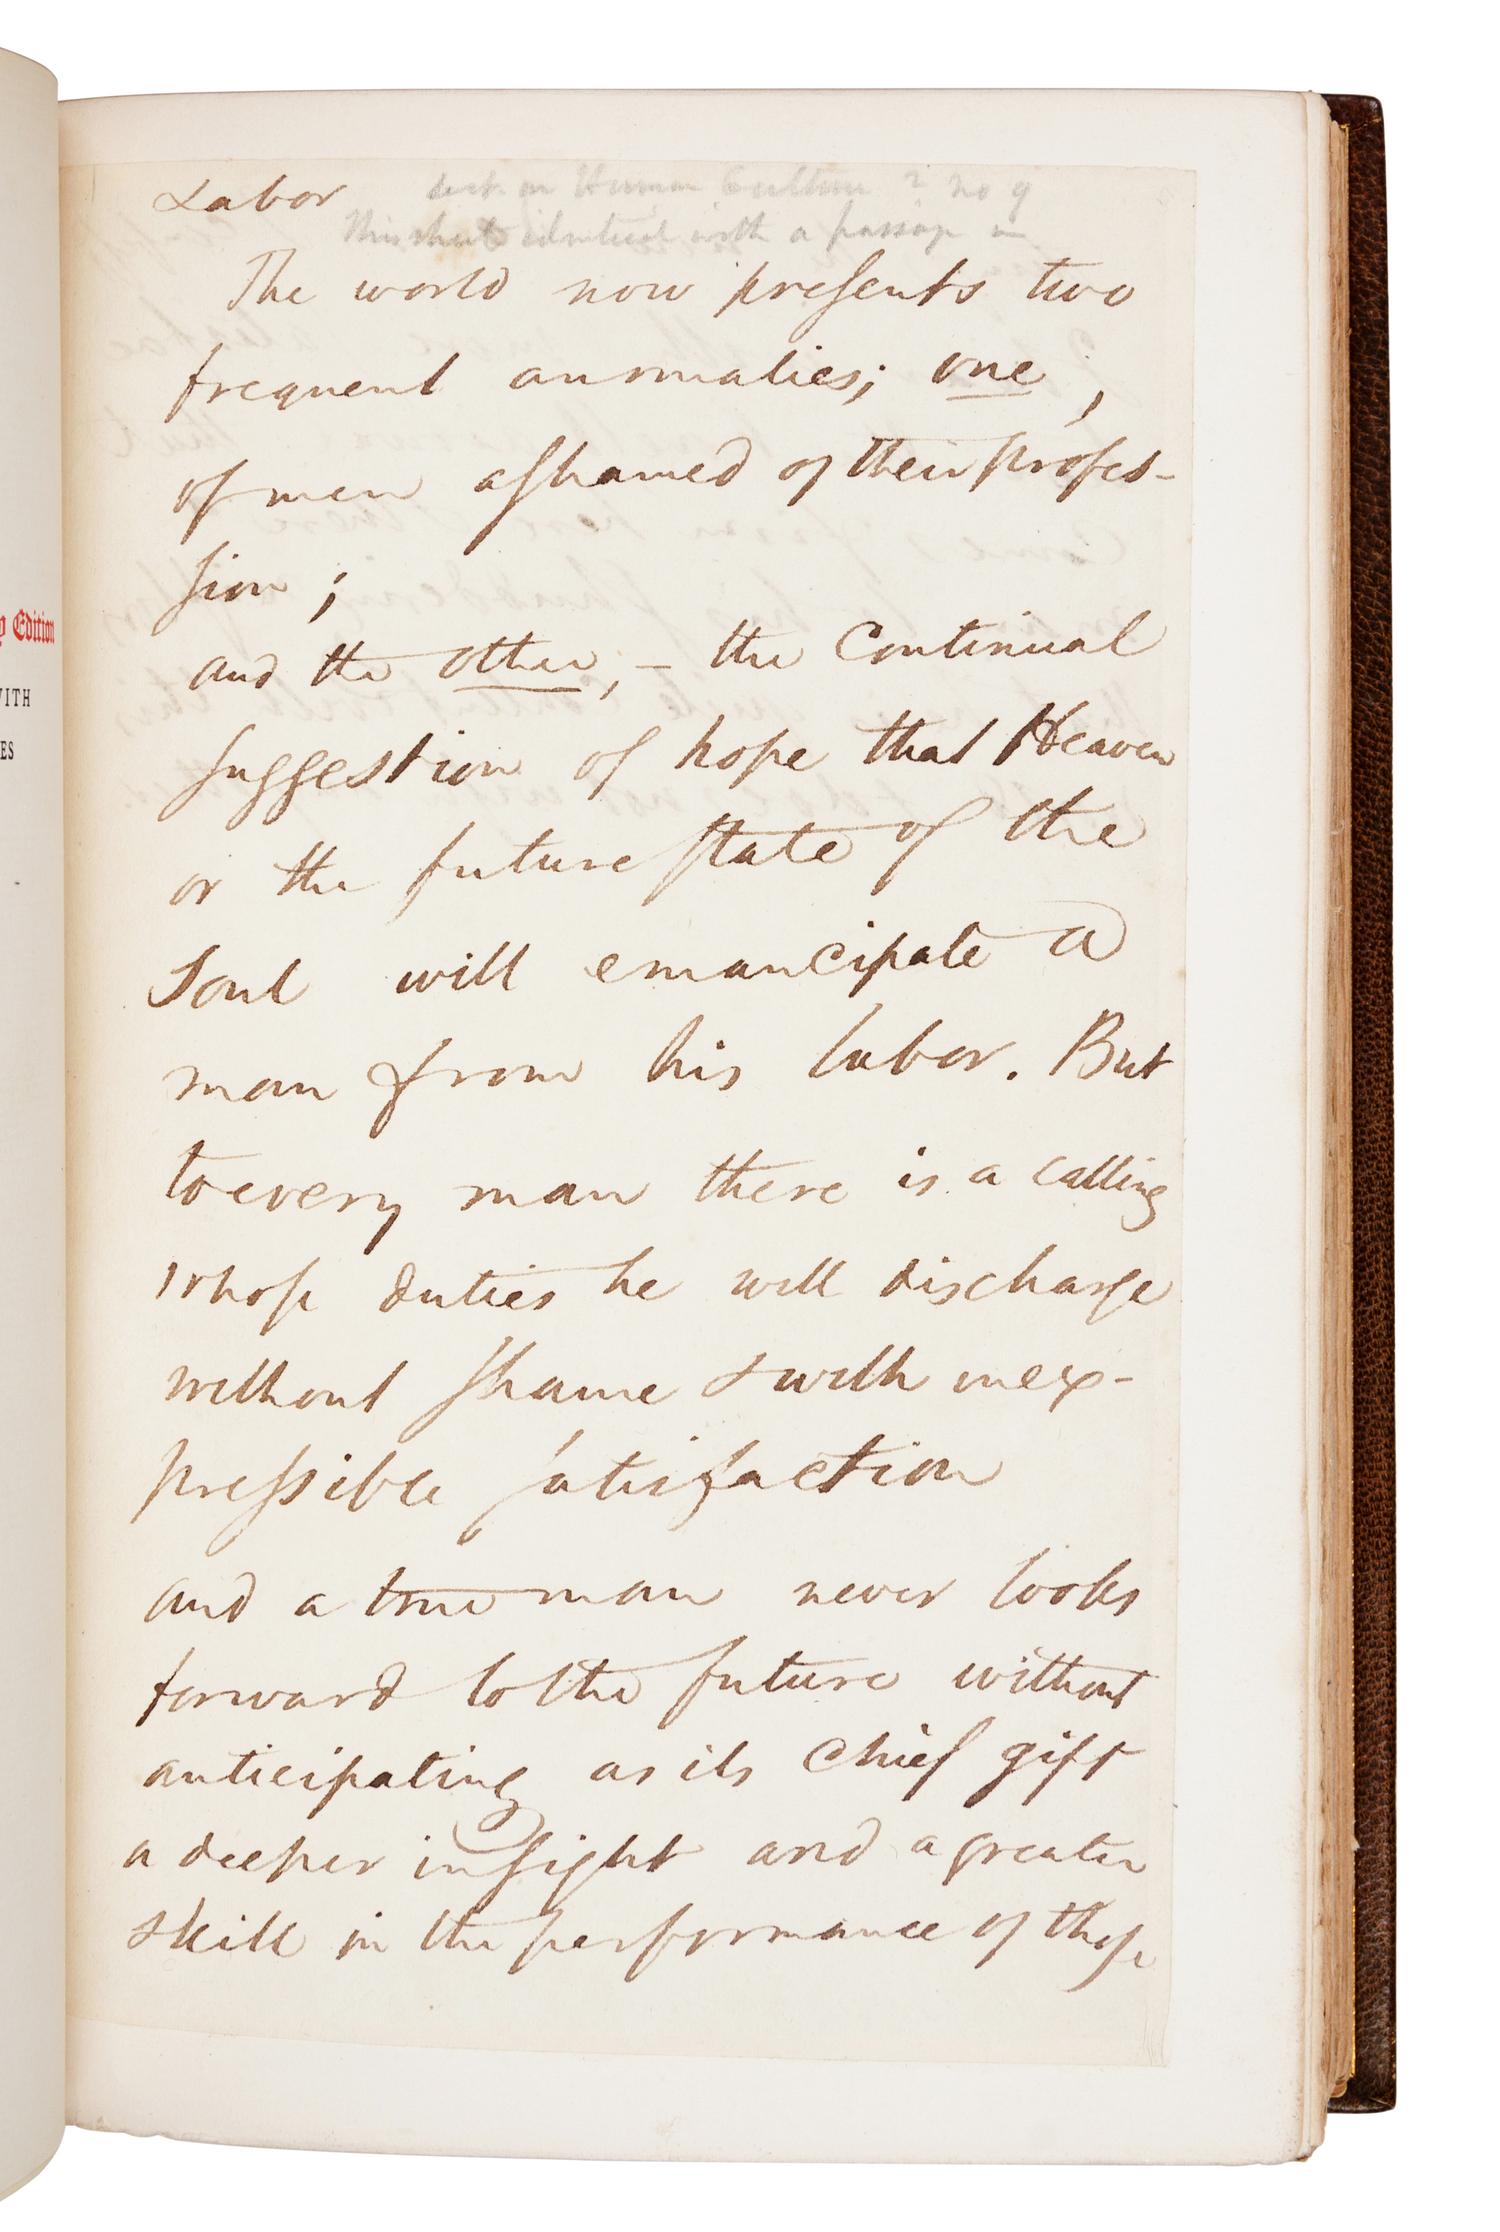 y Edition
WITH
ES
Labor
Lect. on Human Culture ? No 9
This sheet identical with a passage in
The world now presents two
frequent anomalies; one,
of men ashamed of their profes-
sion;
and the other, – the Continual
suggestion of hope that Heaven
or the future state of the
Soul will emancipate a
man from his labor. But
to every man there is a calling
whose duties he will discharge
without shame & with inex-
pressible satisfaction
and a true man never looks
forward to the future without
anticipating as its chief gift
a deeper insight and a greater
skill in the performance of those